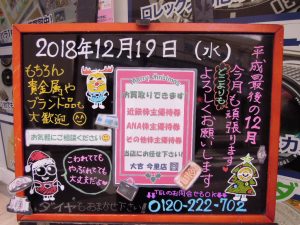 2018年12月19日（水）
平成最後の12月
今月も頑張ります
よろしくお願いします
もちろん
貴金属や
ブランド品も
大歓迎
お気軽にご相談ください
Merry Christmas
お買取りできます
近鉄株主優待券
ANA株主優待券
その他株主優待券
当店にお任せ下さい
大吉 今里店
こわれてても
やぶれてても
大丈夫だよ
ダイヤもおまかせ下さい
TELのお問合せもOK
0120-222-702